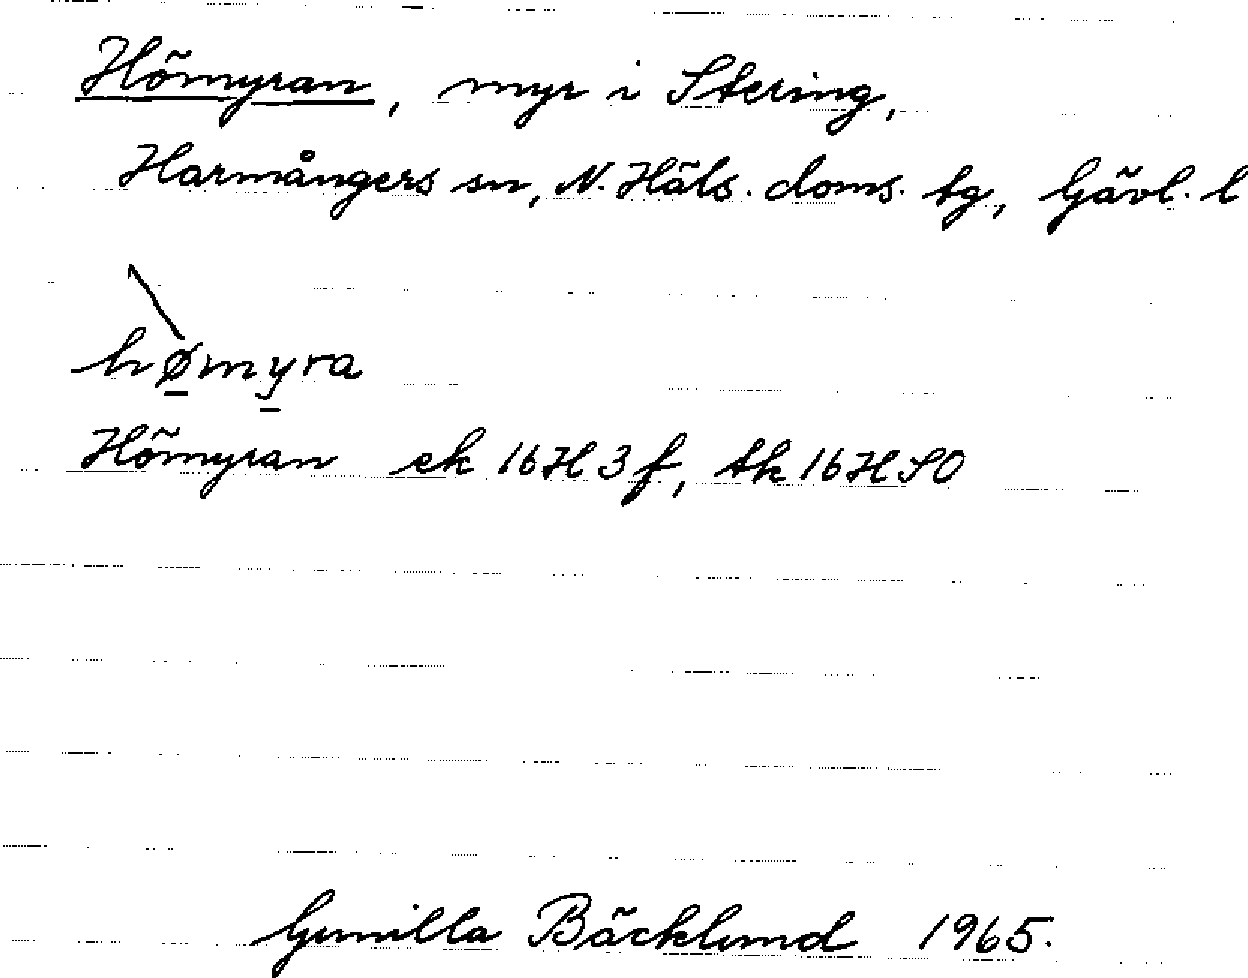 Hömyran, myr i Stering,
Harmångers sn, N. Häls. doms. tg, Gävl. l
hømyra
Hömyran ek 16H3f, tk 16HSO
Gunilla Bäcklund 1965.